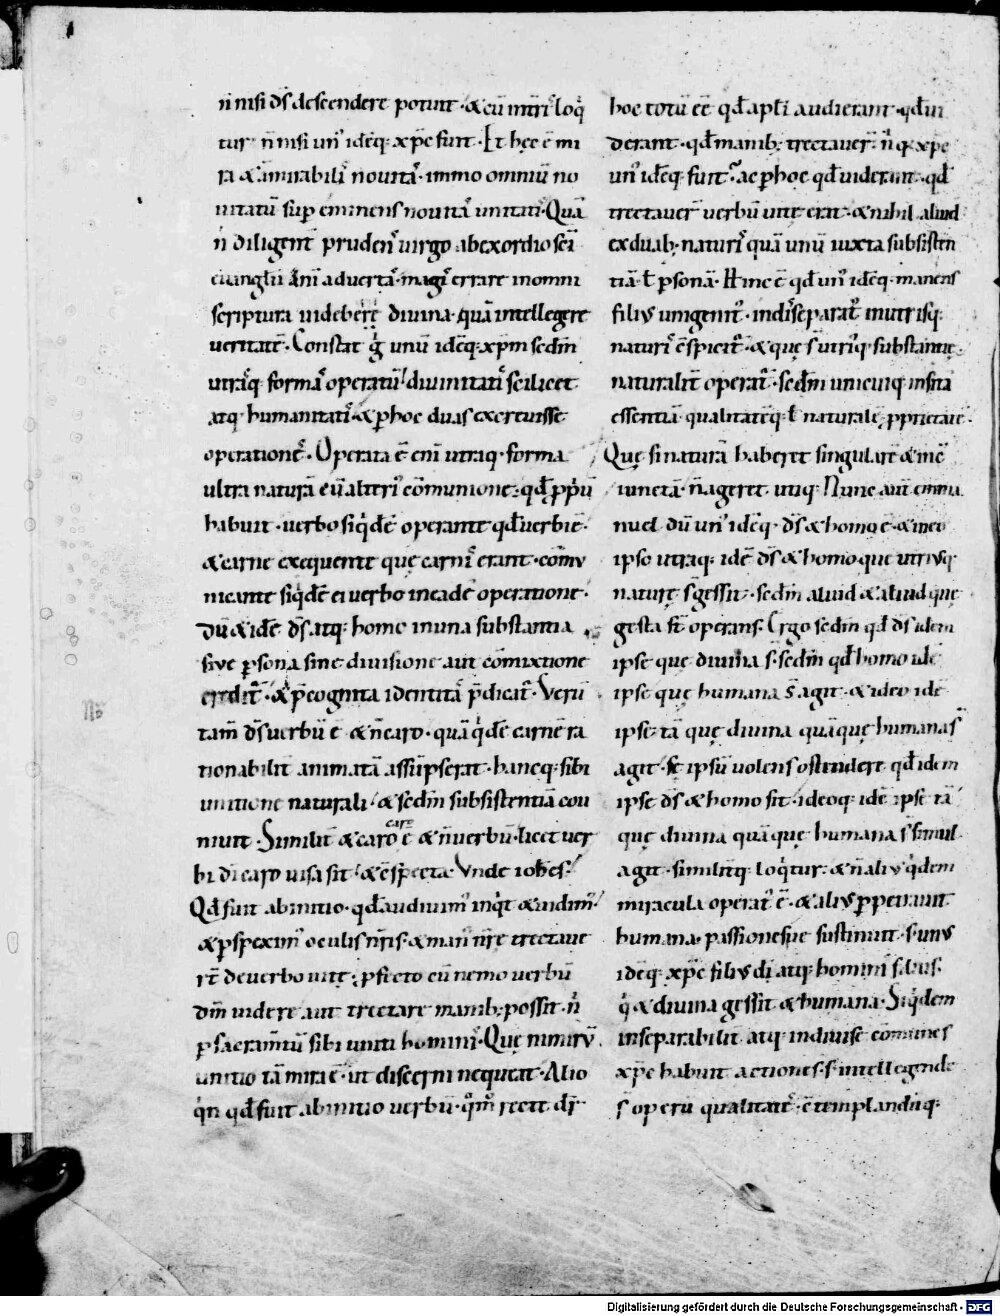 n̄ nisi ds̄ descendere potuit · & cū int̄ri loq̇
tur n̄ nisi un' idēq; xp̄c fuit · Et hęc ē mi
ra & āmirabilis nouitas · immo omniū no
uitatū sup eminens nouitas unitati · Quā
n̄ diligent pruden' uirgo ab exordio sc̄i
euanglii āni aduerta · magis errare in omni
scriptura uideber&ę diuina · quā intellegere
ueritatē · Constat ġ unū idēq; xp̄m sedm̄
utrāq; formā operatū diuinitatis scilicet
atq; humanitatis & p hoc duas exercuisse
operationes · Operata ē eni utraq; forma
ultra naturā cū alteri' cōmunione · qđ p̄priū
habuit · uerbo siq̇dē operante qđ uerbi ē ·
& carne exequente que carnis erant · cōmu
nicante siq̇dē ei uerbo in eadē operatione ·
Dū & idē ds̄ atq; homo in una substantia
siue psona sine diuisione aut cōmixtione
credit' · & p̄cognita identitas p̄dicat' · Verū
tam̄ ds̄ uerbū ē & n̄ caro · quā q̇dē carnē ra
tionabilit animatā assūpserat · hancq; sibi
unitione naturali · & sedm̄ subsistentiā cou
niuit · Similit & caro caro ē & n̄ uerbū · licet uer
bi di caro uisa sit & ē specta · Vnde iohes ·
Qđ fuit ab initio · qđ audiuim' inq̇t & uidim'
& pspexim' oculis nr̄is · & man' nr̄e trectaue
rt̄ de uerbo uite · pfecto cū nemo uerbū
dm̄ uidere aut trectare manib; possit · n̄
p sacramtū sibi uniti hominis · Quę nimirū
unitio tā mira ē · ut discerni nequeat · Alio
q̇n qđ fuit ab initio uerbū · q̇m̄ rect dr̄
hoc totū ēē qđ apl̄i audierant · qđ ui
derant · qđ manib; trectauer̄ · n̄ q; xp̄c
un' idēq; fuit · ac p hoc qđ uiderunt · qđ
trectauer̄ uerbū uitę erat · & nihil aliud
ex duab; naturis quā unū iuxta subsisten
tiā ł psonā · Hinc ē qđ un' idēq; manens
filius unigenit' · indiseparat' in utrisq;
naturis cspicit' · & que s utriq; substantie ·
naturalit operat' · sedm̄ unicuiq; insita
essentiā qualitatēq; ł naturalē p̄prietatē ·
Quę si naturā haberet singularē & incō
iunctā · n̄ ageret utiq; Nunc aut̄ emma
nuel dū un' idēq; ds̄ & homo ē · & in eo
ipso utraq; idē ds̄ & homo que utriusq;
naturę s̄ gessit · sedm̄ aliud & aliud que
gesta st̄ operans · Ergo sedm̄ qđ ds̄ idem
ipse que diuina s̄ · sedm̄ qđ homo idē
ipse quę humana s̄ agit · & ideo idē
ipse tā quę diuina quāque humana s̄
agit · & ipsū uolens ostendere qđ idem
ipse ds̄ & homo sit · ideoq; idē ipse tā
quę diuina quāque humana s̄ simul
agit · similitq; loq̇tur · & n̄ alius q̇dem
miracula operat' ē · & alius ppetrauit
humana passionesue sustinuit · s; unus
idēq; xp̄c filius di atq; hominis filius ·
q̇ & diuina gessit & humana · Siq̇dem
inseparabilit atq; indiuise cōmunes
xp̄c habuit actiones · s; intellegende
s̄ operū qualitates · & cōtemplandeq;